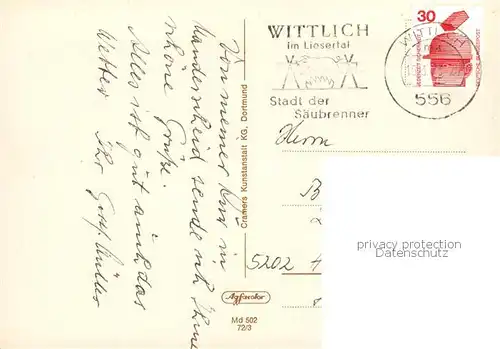 Von meiner Kur in
Manderscheid sende ich Ihnen
schöne Grüße.
Alles ist gut auch das
Wetter
Ihr
Cramers Kunstanstalt KG, Dortmund
WITTLICH
im Liesertal
Stadt der
Säubrenner
30
DEUTSCHE BUNDESPOST
WITTLICH
556
Herrn
B
5202
Agfacolor
Md 502
72/3
privacy protection
Datenschutz